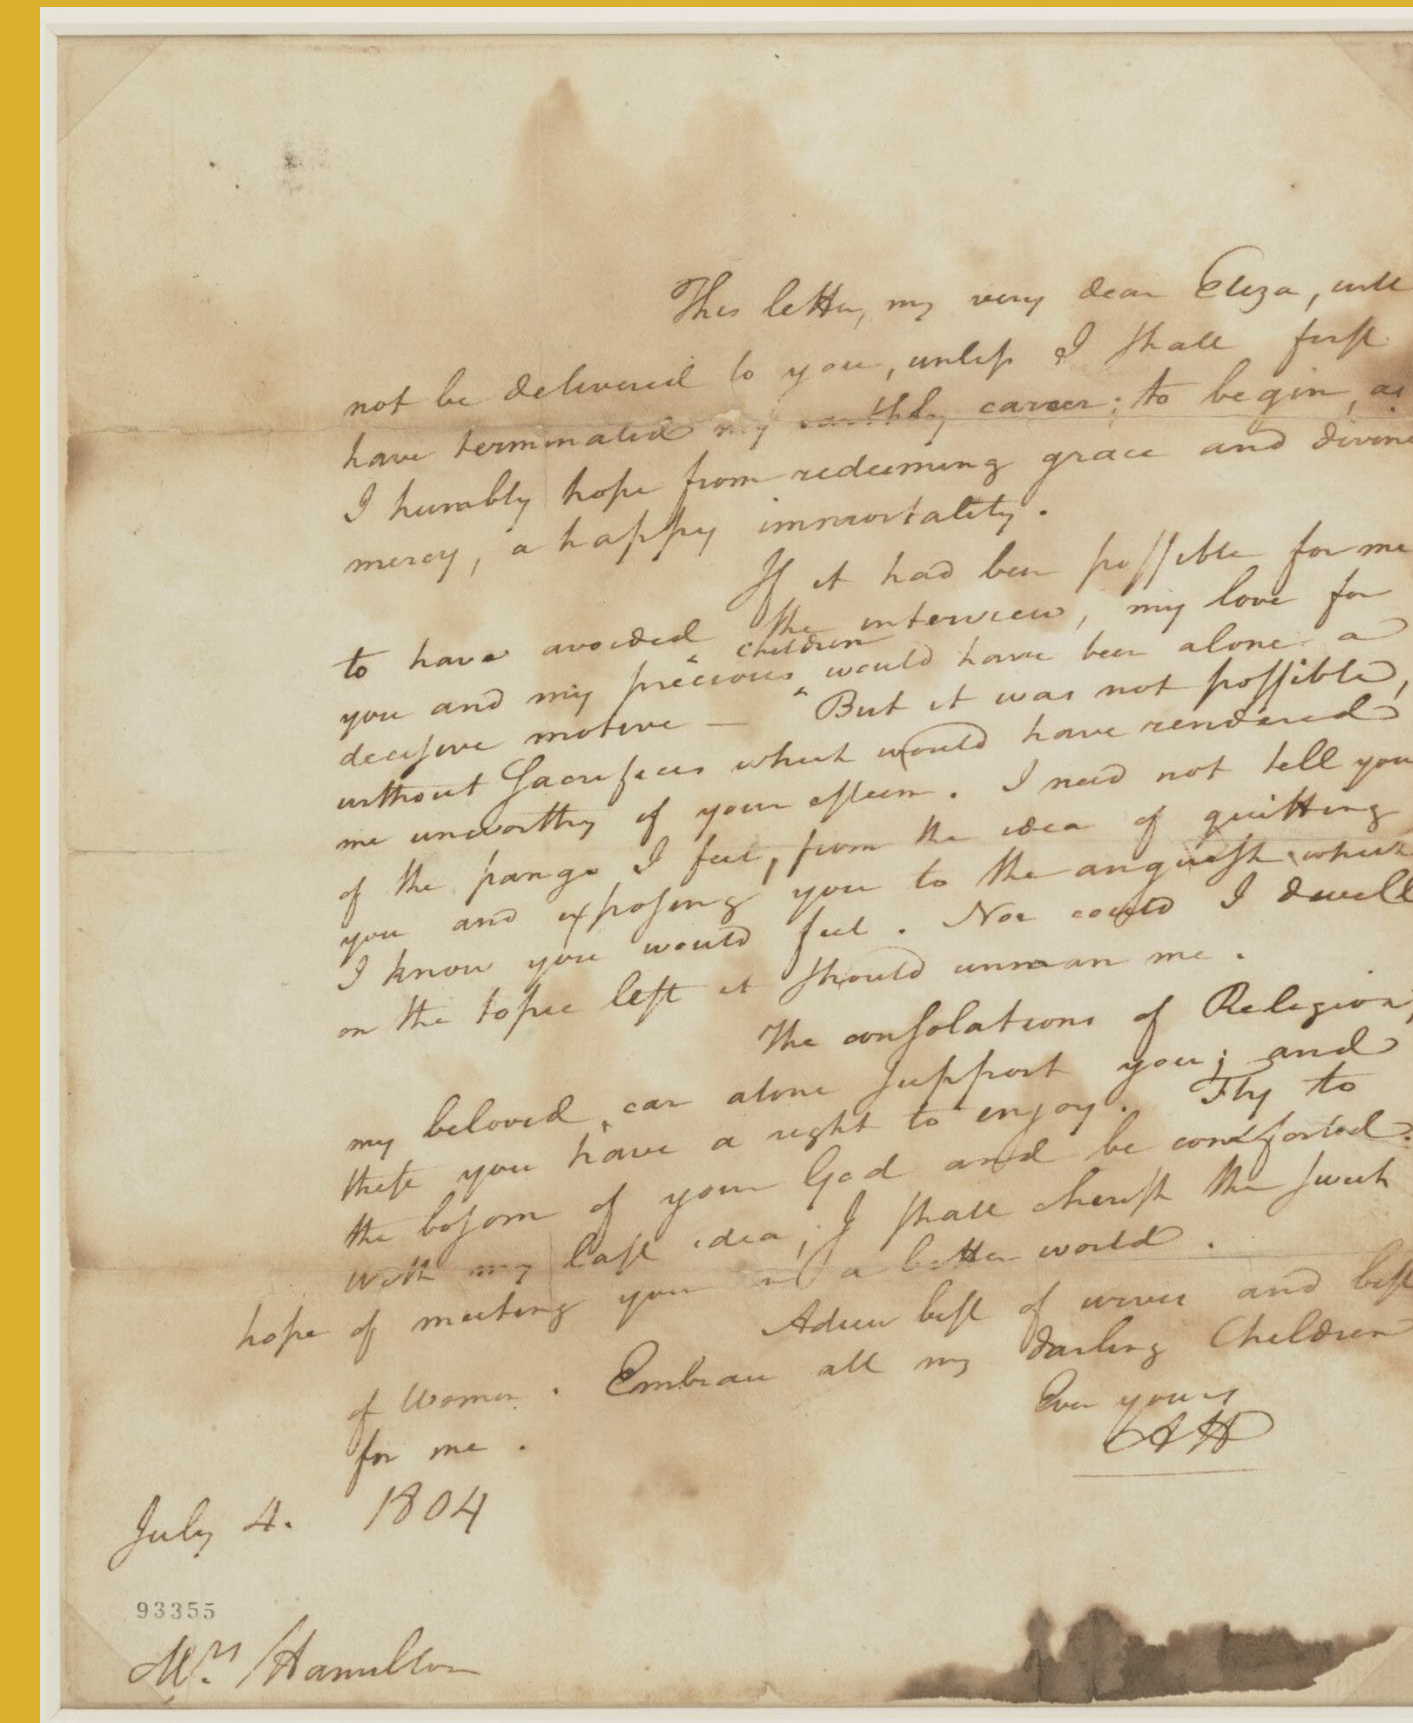 This letter, my very dear Eliza, will
not be delivered to you, unless I shall first
have terminated my earthly career; to begin, as
I humbly hope from redeeming grace and divine
mercy, a happy immortality.
If it had been possible for me
to have avoided the interview, my love for
you and my precious children would have been alone a
decisive motive — But it was not possible,
without Sacrifices which would have rendered
me unworthy of your esteem. I need not tell you
of the pangs I feel, from the idea of quitting
you and exposing you to the anguish which
I know you would feel. Nor could I dwell
on the topic lest it should unman me.
The consolations of Religion,
my beloved, can alone support you; and
these you have a right to enjoy. Fly to
the bosom of your God and be comforted.
With my last idea; I shall cherish the sweet
hope of meeting you in a better world.
Adieu best of wives and best
of Women. Embrace all my darling Children
for me.
Ever yours
AH
July 4. 1804
93355
Mrs. Hamilton